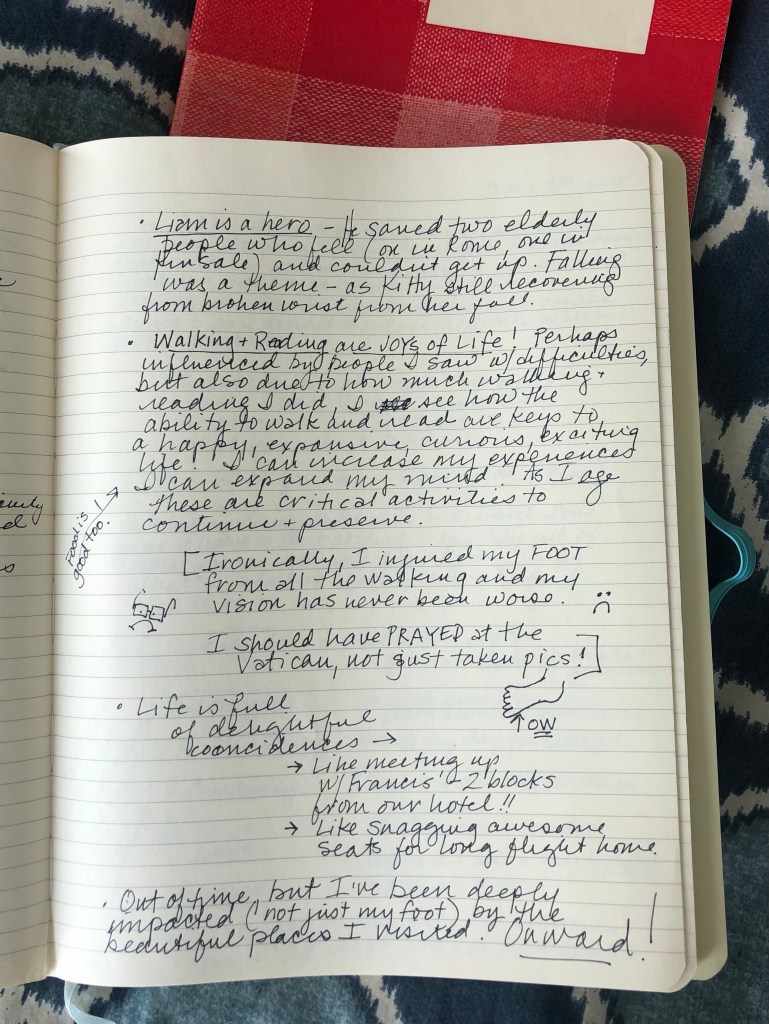 · Liam is a hero - He saved two elderly
people who fell (on in Rome, one in
Kinsale) and couldn't get up. Falling
was a theme - as Kitty still recovering
from broken wrist from her fall.
· Walking + Reading are JOYS of Life! Perhaps
influenced by people I saw w/ difficulties,
but also due to how much walking +
reading I did, I see how the
ability to walk and read are keys to
a happy, expansive, curious, exciting
life! I can increase my experiences
I can expand my mind. As I age
these are critical activities to
continue + preserve.
Food is
good too!
[Ironically, I injured my FOOT
from all the walking and my
vision has never been worse. :(
I should have PRAYED at the
Vatican, not just taken pics!]
↑ OW
· Life is full
of delightful
cooncidences →
→ Like meeting up
w/ Francis' - 2 blocks
from our hotel!!
→ Like snagging awesome
seats for long flight home.
· Out of time, but I've been deeply
impacted (not just my foot) by the
beautiful places I visited. Onward!